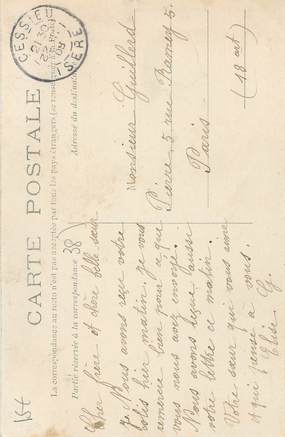 CARTE POSTALE
La correspondance au recto n'est pas acceptée par tous les pays étrangers (se renseigner à la Poste)
Partie réservée à la correspondance
Adresse du destinataire
CESSIEU
ISÈRE
38
Cher frère et chère belle sœur
Nous avons reçue votre
colis hier matin. Je vous
remercie bien pour ce que
vous nous avez envoyé.
Nous avons reçue aussi
votre lettre ce matin.
Votre sœur qui vous aime
et qui pense à vous.
Elise G.
Monsieur Guillerd
Pierre, 5 rue Ramey 5.
Paris
(18 art)